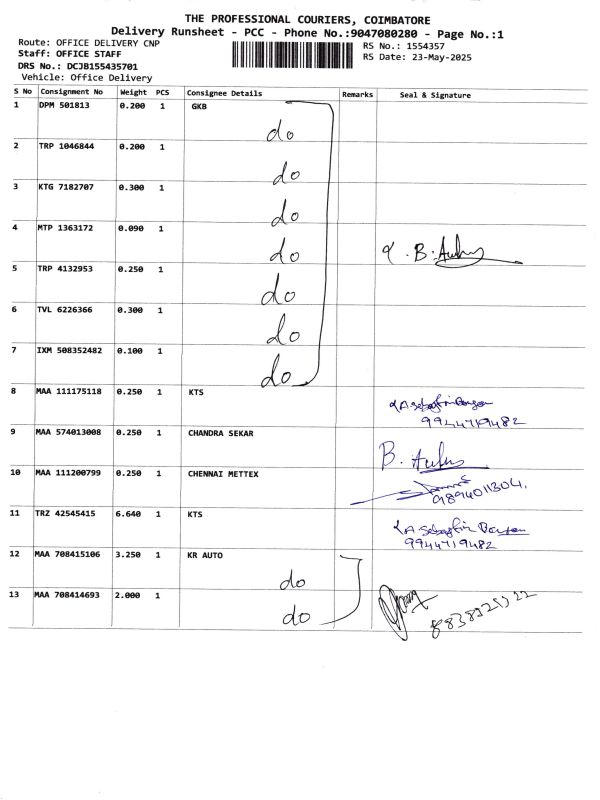 THE PROFESSIONAL COURIERS, COIMBATORE
Delivery Runsheet - PCC - Phone No.:9047080280 - Page No.:1
Route: OFFICE DELIVERY CNP
RS No.: 1554357
Staff: OFFICE STAFF
RS Date: 23-May-2025
DRS No.: DCJB155435701
Vehicle: Office Delivery
S No Consignment No Weight PCS Consignee Details Remarks Seal & Signature
1 DPM 501813 0.200 1 GKB
do
2 TRP 1046844 0.200 1
do
3 KTG 7182707 0.300 1
do
4 MTP 1363172 0.090 1
do B.
5 TRP 4132953 0.250 1
do
6 TVL 6226366 0.300 1
do
7 IXM 508352482 0.100 1
do
8 MAA 111175118 0.250 1 KTS
9944719482
9 MAA 574013008 0.250 1 CHANDRA SEKAR
B.
10 MAA 111200799 0.250 1 CHENNAI METTEX
9894011304.
11 TRZ 42545415 6.640 1 KTS
9944719482
12 MAA 708415106 3.250 1 KR AUTO
do
13 MAA 708414693 2.000 1
do